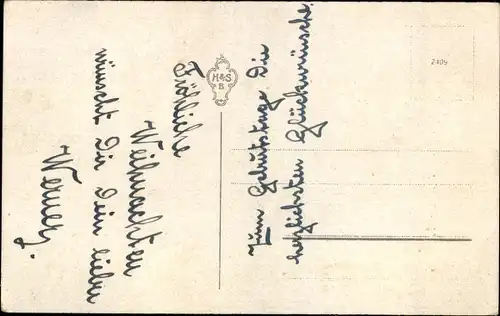 Fröhliche
Weihnachten
wünscht Dir Dein lieber
Werner.
Zum Geburtstage Die
herzlichsten Glückwünsche.
H&S
B
2409